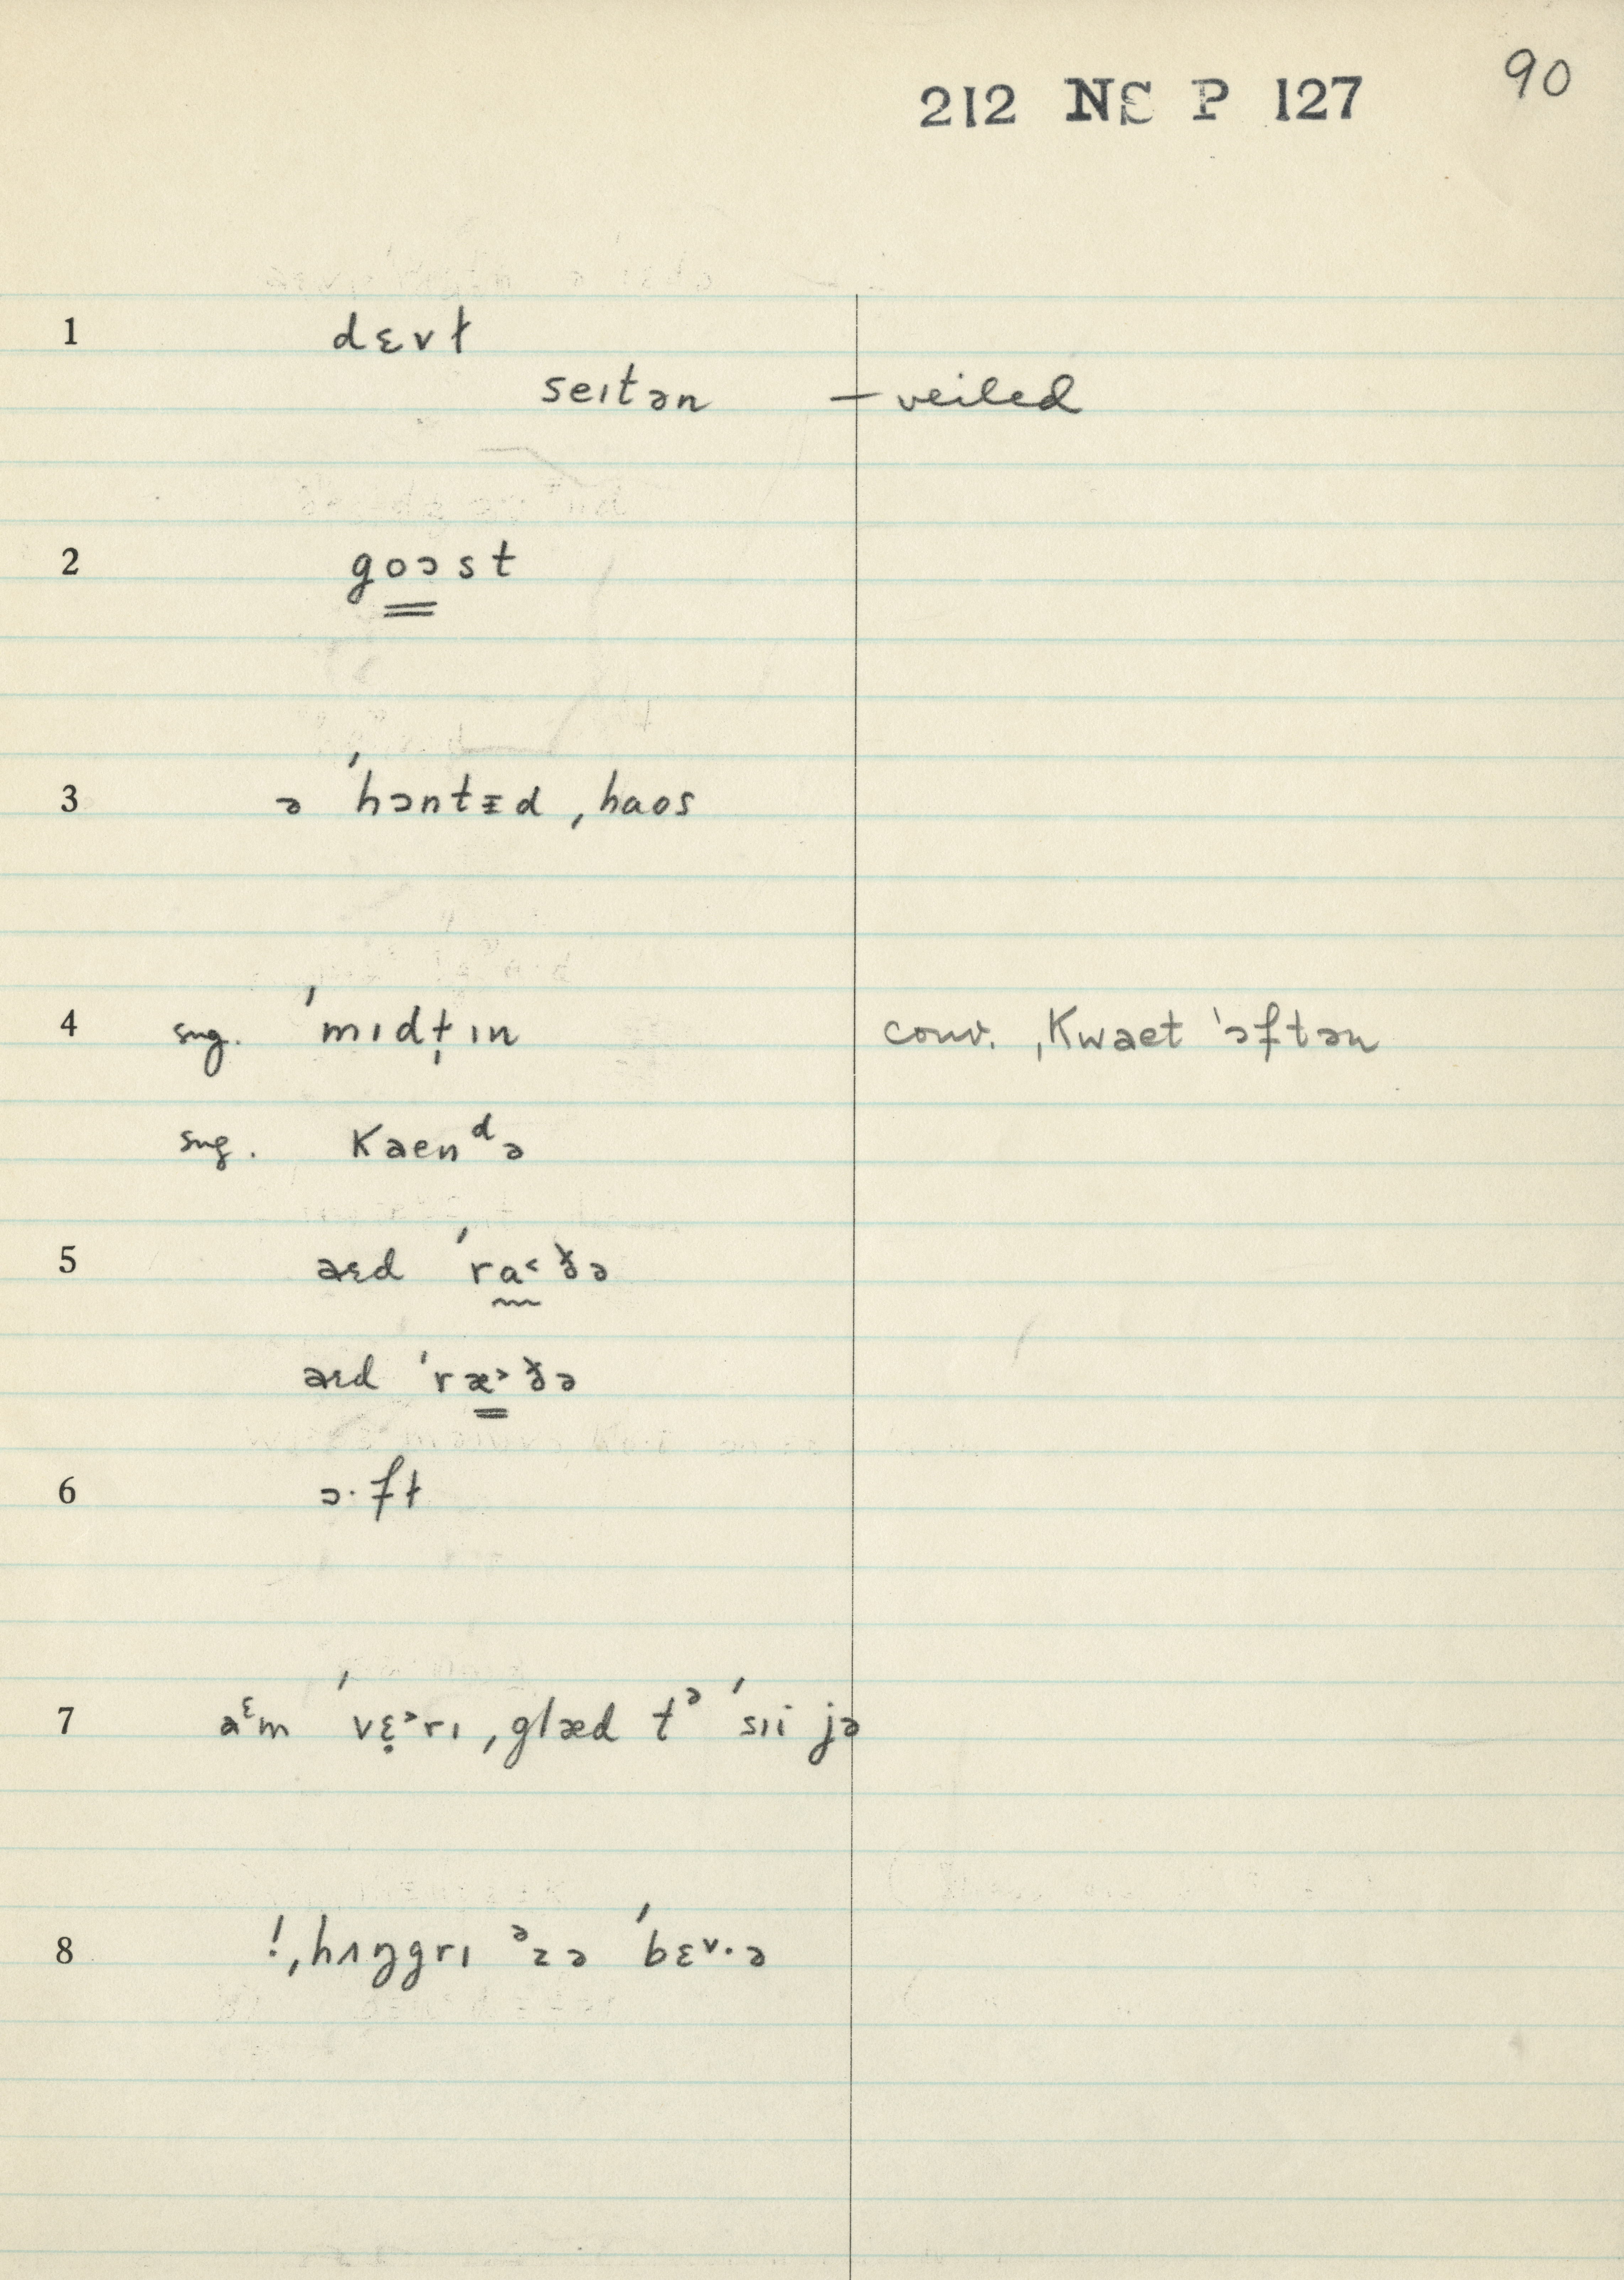 90
212 NS P 127
1 dɛvɫ
seɪtən — veiled
2 goɔst
3 ə ˈhɔntɪd ˌhaos
4 sug. ˈmɪdɫ̩ ɪn conv. ˌkwaet ˈɔftən
sug. kaenᵈə
5 aɛd ˈra˂ðə
aɛd ˈræ˃ðə
6 ɔ·fɫ
7 aᵋm ˈvɛ̣˃rɪ ˌglæd tᵊ ˈsɪi jə
8 !ˌhʌŋgrɪ ᵊz ə ˈbɛᵛ·ə